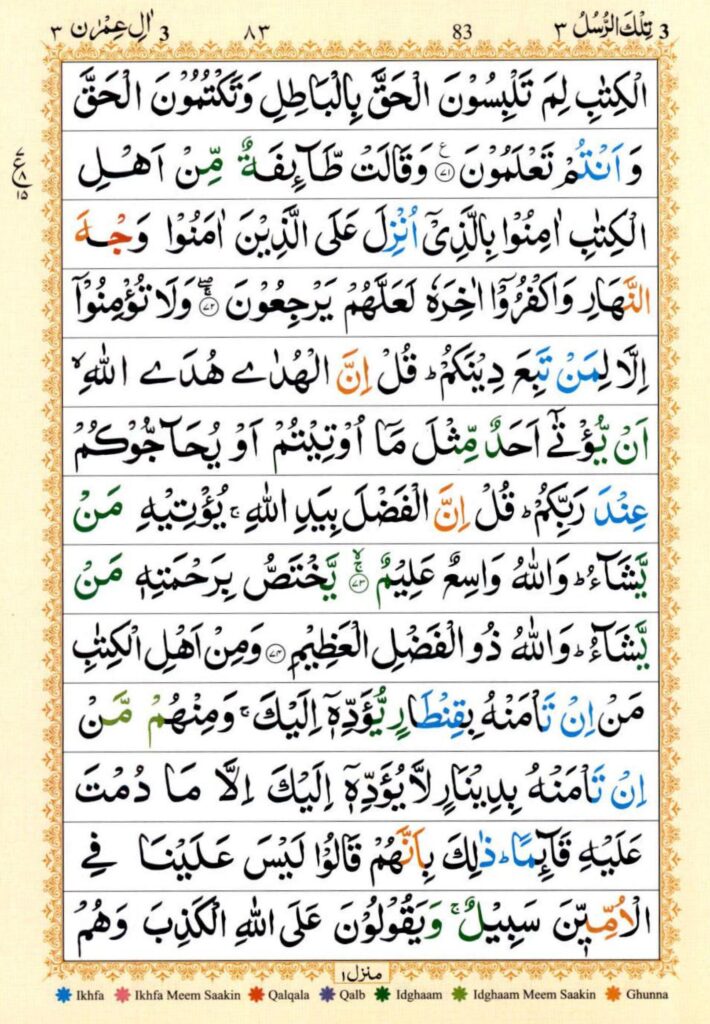 3 تِلْكَ الرُّسُلُ ٣ 83 ٨٣ 3 اٰلِ عِمْرٰن ٣
الْكِتٰبِ لِمَ تَلْبِسُوْنَ الْحَقَّ بِالْبَاطِلِ وَتَكْتُمُوْنَ الْحَقَّ
وَ اَنْتُمْ تَعْلَمُوْنَ ۧ ﴿٧١﴾ وَقَالَتْ طَّآىِٕفَةٌ مِّنْ اَهْلِ
ع ٧ ٨ ١٥
الْكِتٰبِ اٰمِنُوْا بِالَّذِيْۤ اُنْزِلَ عَلَى الَّذِيْنَ اٰمَنُوْا وَجْهَ
النَّهَارِ وَاكْفُرُوْۤا اٰخِرَهٗ لَعَلَّهُمْ يَرْجِعُوْنَ ۚۖ ﴿٧٢﴾ وَلَا تُؤْمِنُوْۤا
اِلَّا لِمَنْ تَبِعَ دِيْنَكُمْ ؕ قُلْ اِنَّ الْهُدٰى هُدَى اللّٰهِ ۙ
اَنْ يُّؤْتٰۤى اَحَدٌ مِّثْلَ مَاۤ اُوْتِيْتُمْ اَوْ يُحَآجُّوْكُمْ
عِنْدَ رَبِّكُمْ ؕ قُلْ اِنَّ الْفَضْلَ بِيَدِ اللّٰهِ ۚ يُؤْتِيْهِ مَنْ
يَّشَآءُ ؕ وَاللّٰهُ وَاسِعٌ عَلِيْمٌ ۚۙ ﴿٧٣﴾ يَّخْتَصُّ بِرَحْمَتِهٖ مَنْ
يَّشَآءُ ؕ وَاللّٰهُ ذُو الْفَضْلِ الْعَظِيْمِ ﴿٧٤﴾ وَمِنْ اَهْلِ الْكِتٰبِ
مَنْ اِنْ تَاْمَنْهُ بِقِنْطَارٍ يُّؤَدِّهٖۤ اِلَيْكَ ۚ وَمِنْهُمْ مَّنْ
اِنْ تَاْمَنْهُ بِدِيْنَارٍ لَّا يُؤَدِّهٖۤ اِلَيْكَ اِلَّا مَا دُمْتَ
عَلَيْهِ قَآىِٕمًا ؕ ذٰلِكَ بِاَنَّهُمْ قَالُوْا لَيْسَ عَلَيْنَا فِى
الْاُمِّيّٖنَ سَبِيْلٌ ۚ وَيَقُوْلُوْنَ عَلَى اللّٰهِ الْكَذِبَ وَهُمْ
منزل ١
Ikhfa Ikhfa Meem Saakin Qalqala Qalb Idghaam Idghaam Meem Saakin Ghunna